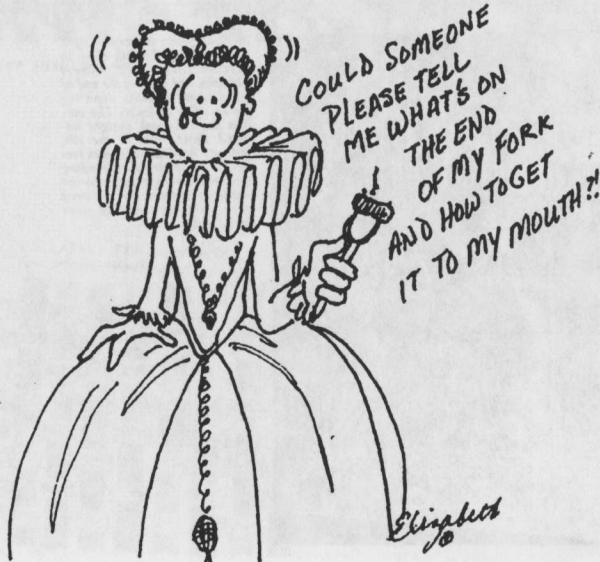 COULD SOMEONE
PLEASE TELL
ME WHAT'S ON
THE END
OF MY FORK
AND HOW TO GET
IT TO MY MOUTH?!
Elizabeth